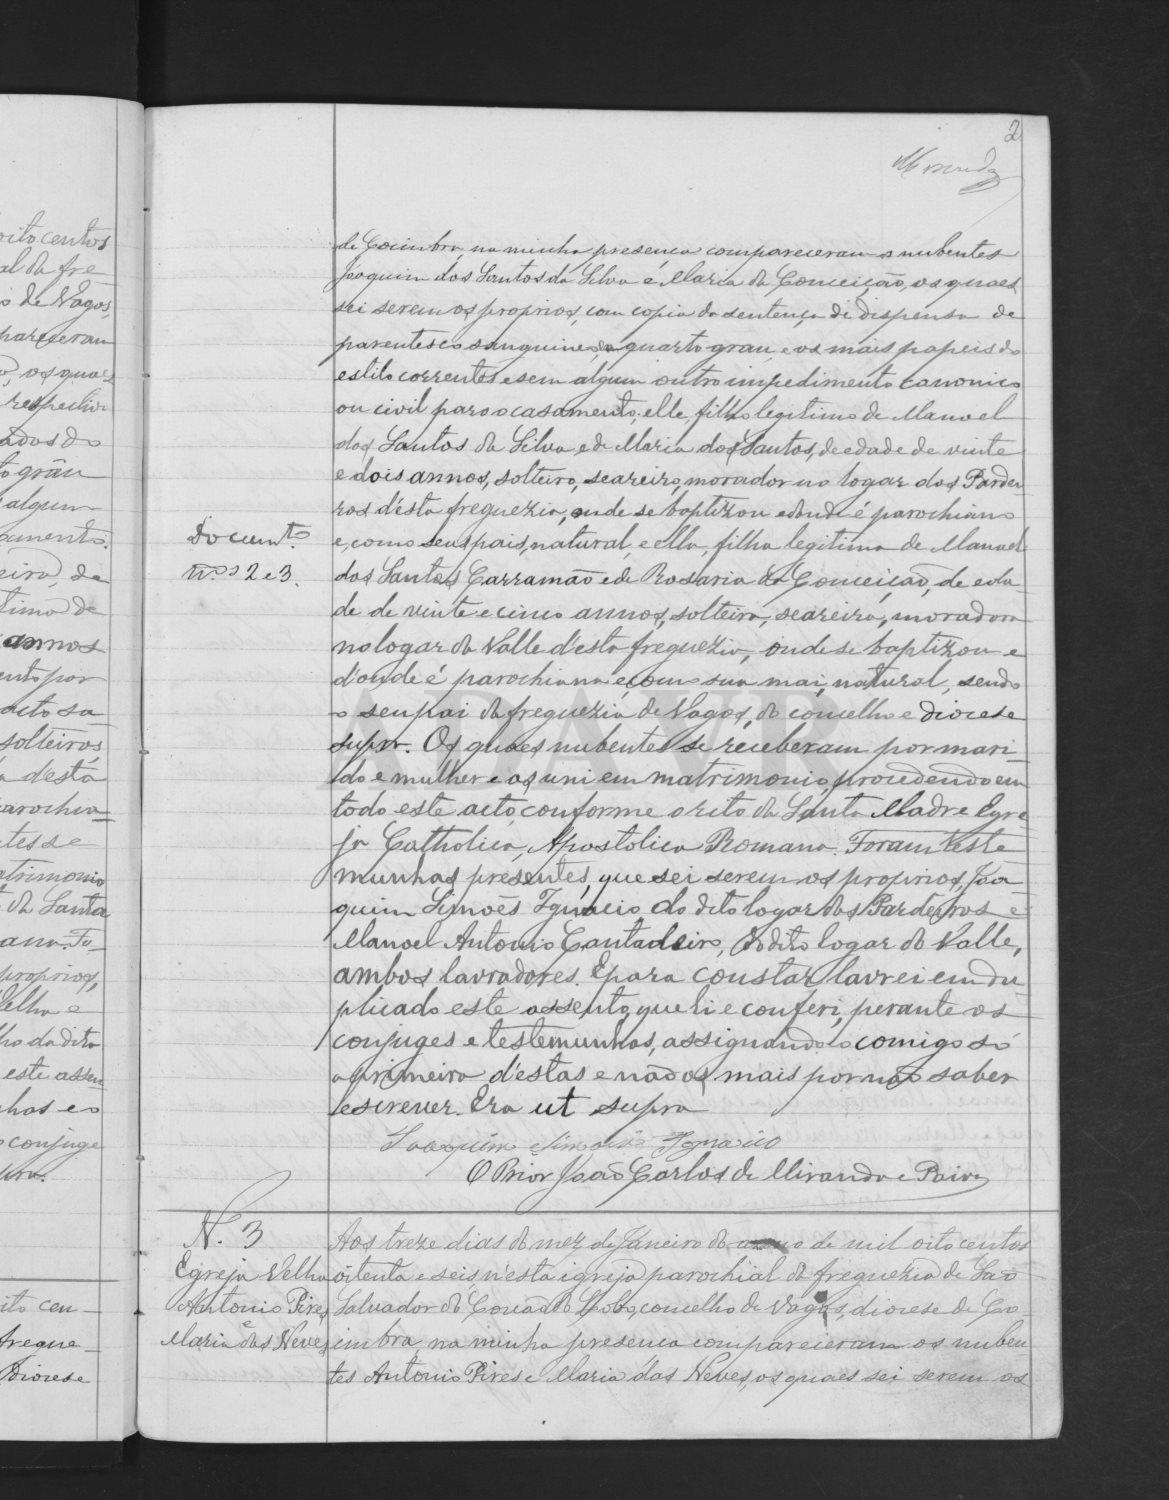 2
Miranda
de Coimbra, na minha presença compareceram os nubentes
Joaquim dos Santos da Silva e Maria da Conceição, os quaes
sei serem os proprios, com copia da sentença de dispensa de
parentesco sanguineo, quarto grau e os mais papeis do
estilo correntes e sem algum outro impedimento canonico
ou civil para o casamento; elle, filho legitimo de Manoel
dos Santos da Silva e de Maria dos Santos, de edade de vinte
e dois annos, solteiro, seareiro, morador no logar dos Pardei-
ros d'esta freguezia, onde se baptizou e donde é parochiano
Documt.os
n.os 2 e 3.
e, como seus pais, natural, e ella, filha legitima de Manoel
dos Santos Carramão e de Rosaria da Conceição, de eda-
de de vinte e cinco annos, solteira, seareira, moradora
no logar da Valle d'esta freguezia, onde se baptizou e
d'onde é parochiana e, como sua mai, natural, sendo
o seu pai da freguezia de Vagos, do concelho e diocese
supra. Os quaes nubentes se receberam por mari-
do e mulher e os uni em matrimonio, procedendo em
todo este acto conforme o rito da Santa Madre Egre-
ja Catholica, Apostolica Romana. Foram teste-
munhas presentes, que sei serem os proprios, Joa-
quim Simões Ignacio, do dito logar dos Pardeiros e
Manoel Antonio Cantadeiro, do dito logar do Valle,
ambos lavradores. E para constar lavrei em du-
plicado este assento, que li e conferi, perante os
conjuges e testemunhas, assignando-o comigo só
a primeira d'estas e não os mais por não saber
escrever. Era ut supra
Joaquim Simões Ignacio
O Prior João Carlos de Miranda e Paiva
N.º 3
Egreja Velha
Antonio Pires
e
Maria das Neves
Aos treze dias do mez de Janeiro do anno de mil oito centos
oitenta e seis, n'esta igreja parochial da freguezia de São
Salvador da Covão do Lobo, concelho de Vagos, diocese de Co-
imbra, na minha presença compareceram os nuben-
tes Antonio Pires e Maria das Neves, os quaes sei serem os
ADAVR